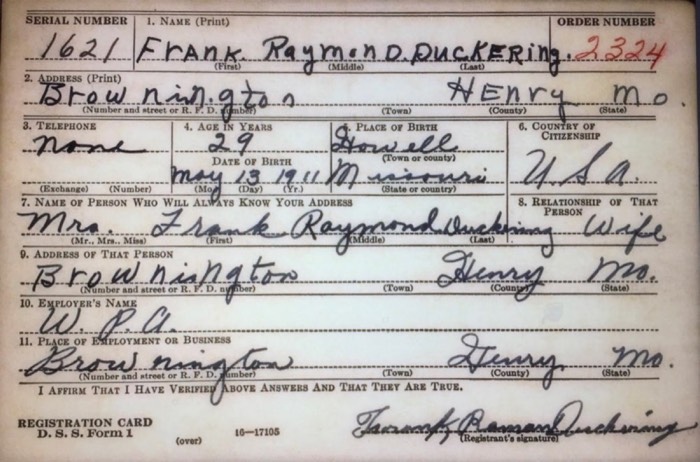 SERIAL NUMBER 1. NAME (Print) ORDER NUMBER
1621 FrANK Raymond DUCKERing. 2324
(First) (Middle) (Last)
2. ADDRESS (Print)
Brownington HENry mo.
(Number and street or R. F. D. number) (Town) (County) (State)
3. TELEPHONE 4. AGE IN YEARS 5. PLACE OF BIRTH 6. COUNTRY OF
none 29 Howell CITIZENSHIP
DATE OF BIRTH (Town or county)
may 13 1911 Missouri U.S.A.
(Exchange) (Number) (Mo.) (Day) (Yr.) (State or country)
7. NAME OF PERSON WHO WILL ALWAYS KNOW YOUR ADDRESS 8. RELATIONSHIP OF THAT
PERSON
Mrs. Frank Raymond Duckering Wife
(Mr., Mrs., Miss) (First) (Middle) (Last)
9. ADDRESS OF THAT PERSON
Brownington Henry Mo.
(Number and street or R. F. D. number) (Town) (County) (State)
10. EMPLOYER'S NAME
W. P. A.
11. PLACE OF EMPLOYMENT OR BUSINESS
Brownington Henry Mo.
(Number and street or R. F. D. number) (Town) (County) (State)
I AFFIRM THAT I HAVE VERIFIED ABOVE ANSWERS AND THAT THEY ARE TRUE.
REGISTRATION CARD
D. S. S. Form 1 (over) 16-17105 Duckering
(Registrant's signature)